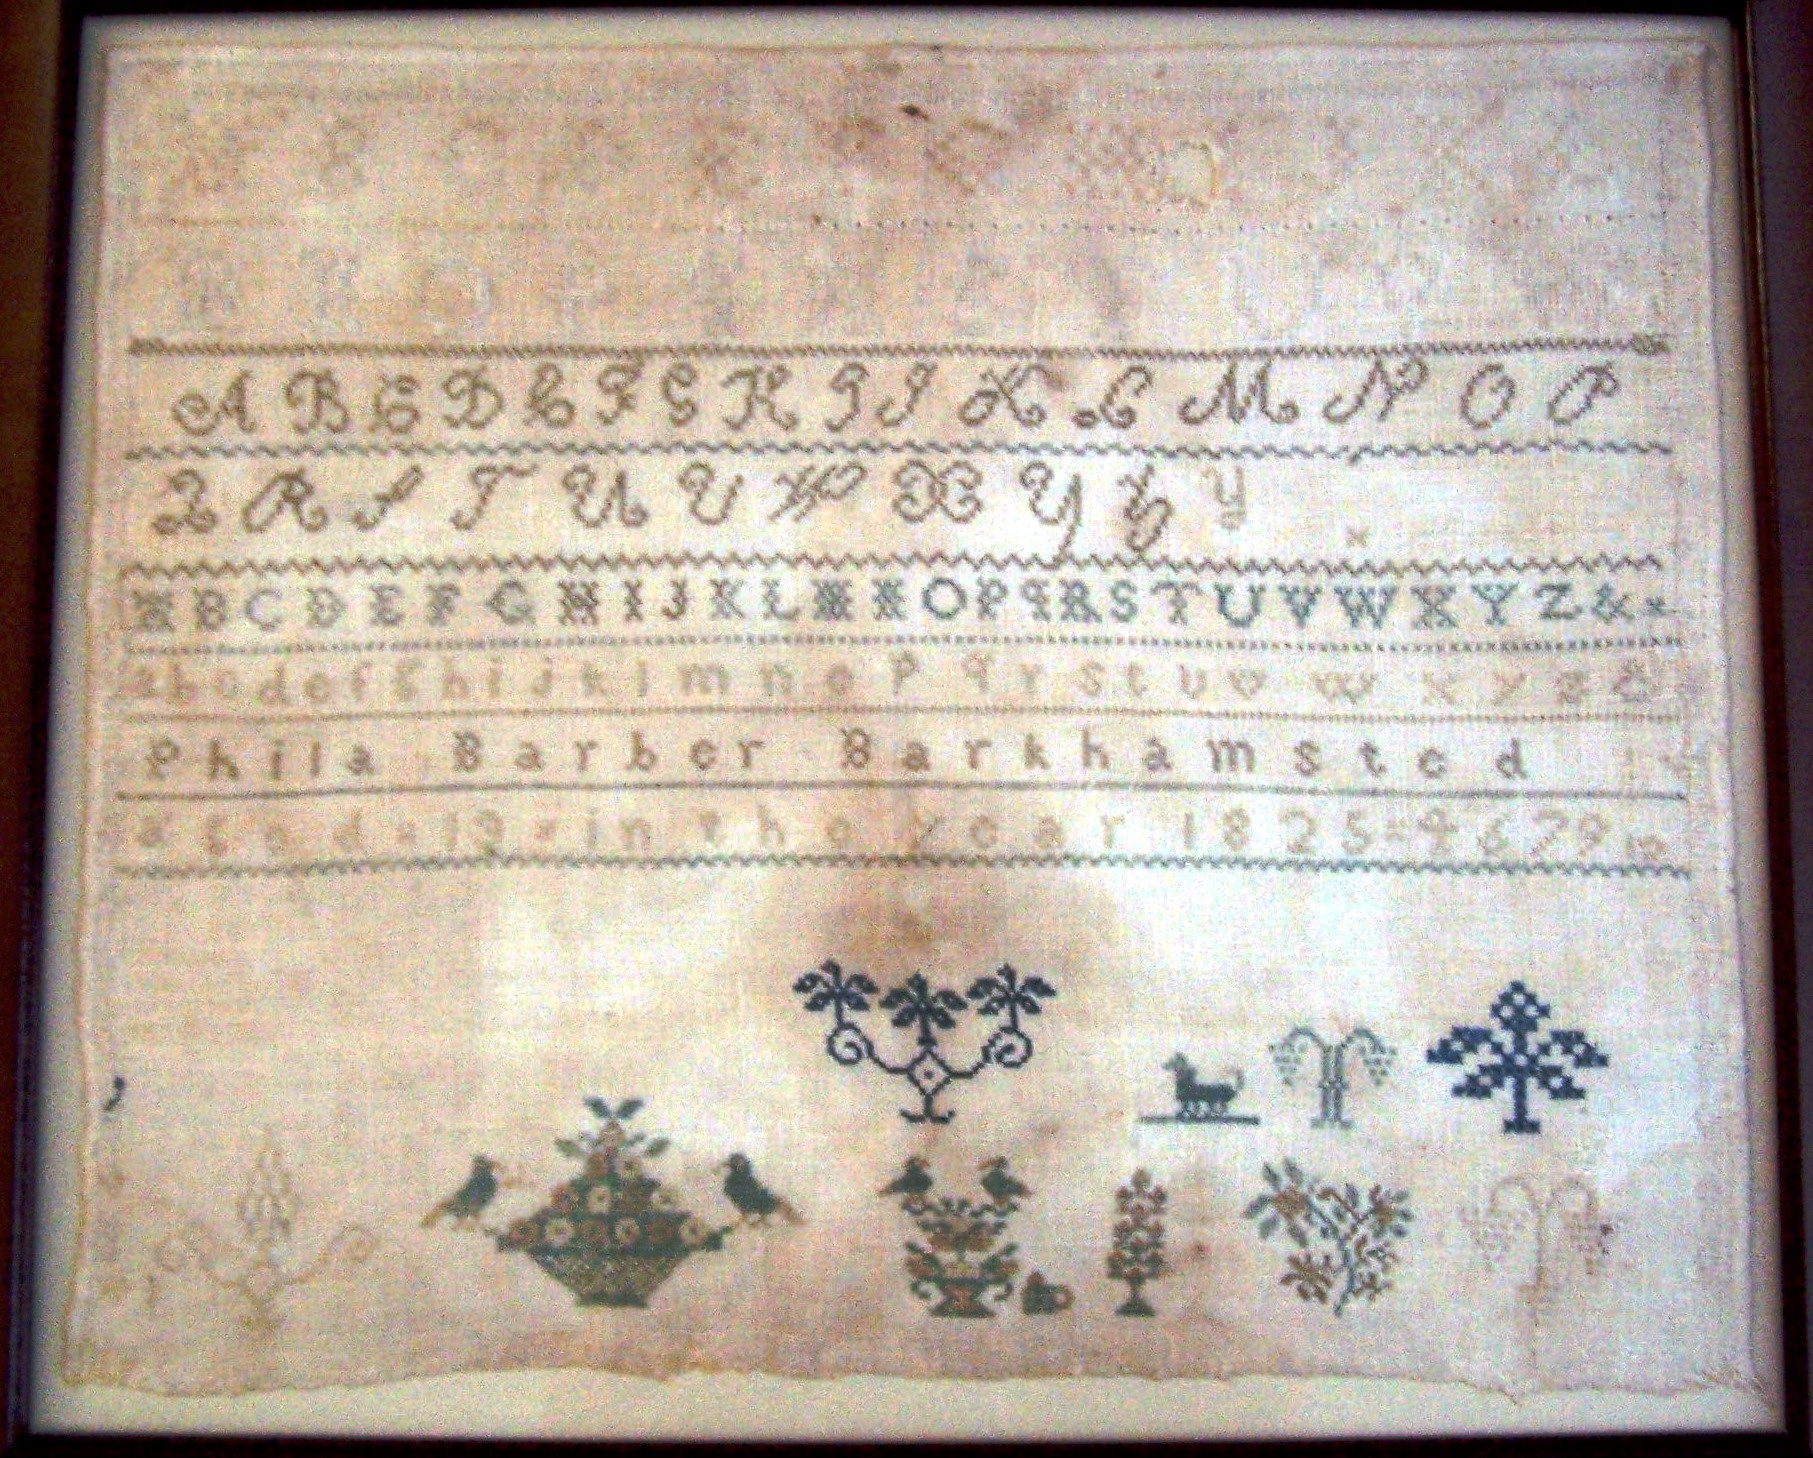 A B C D E F G H I J K L M N O P
Q R S T U V W X Y Z Y
A B C D E F G H I J K L M N O P q R S T U V W X Y Z &
a b c d e f g h i j k l m n o p q r s t u v w x y z &
Phila Barber Barkhamsted
aged 13 in the year 1825 4 6 7 9 10